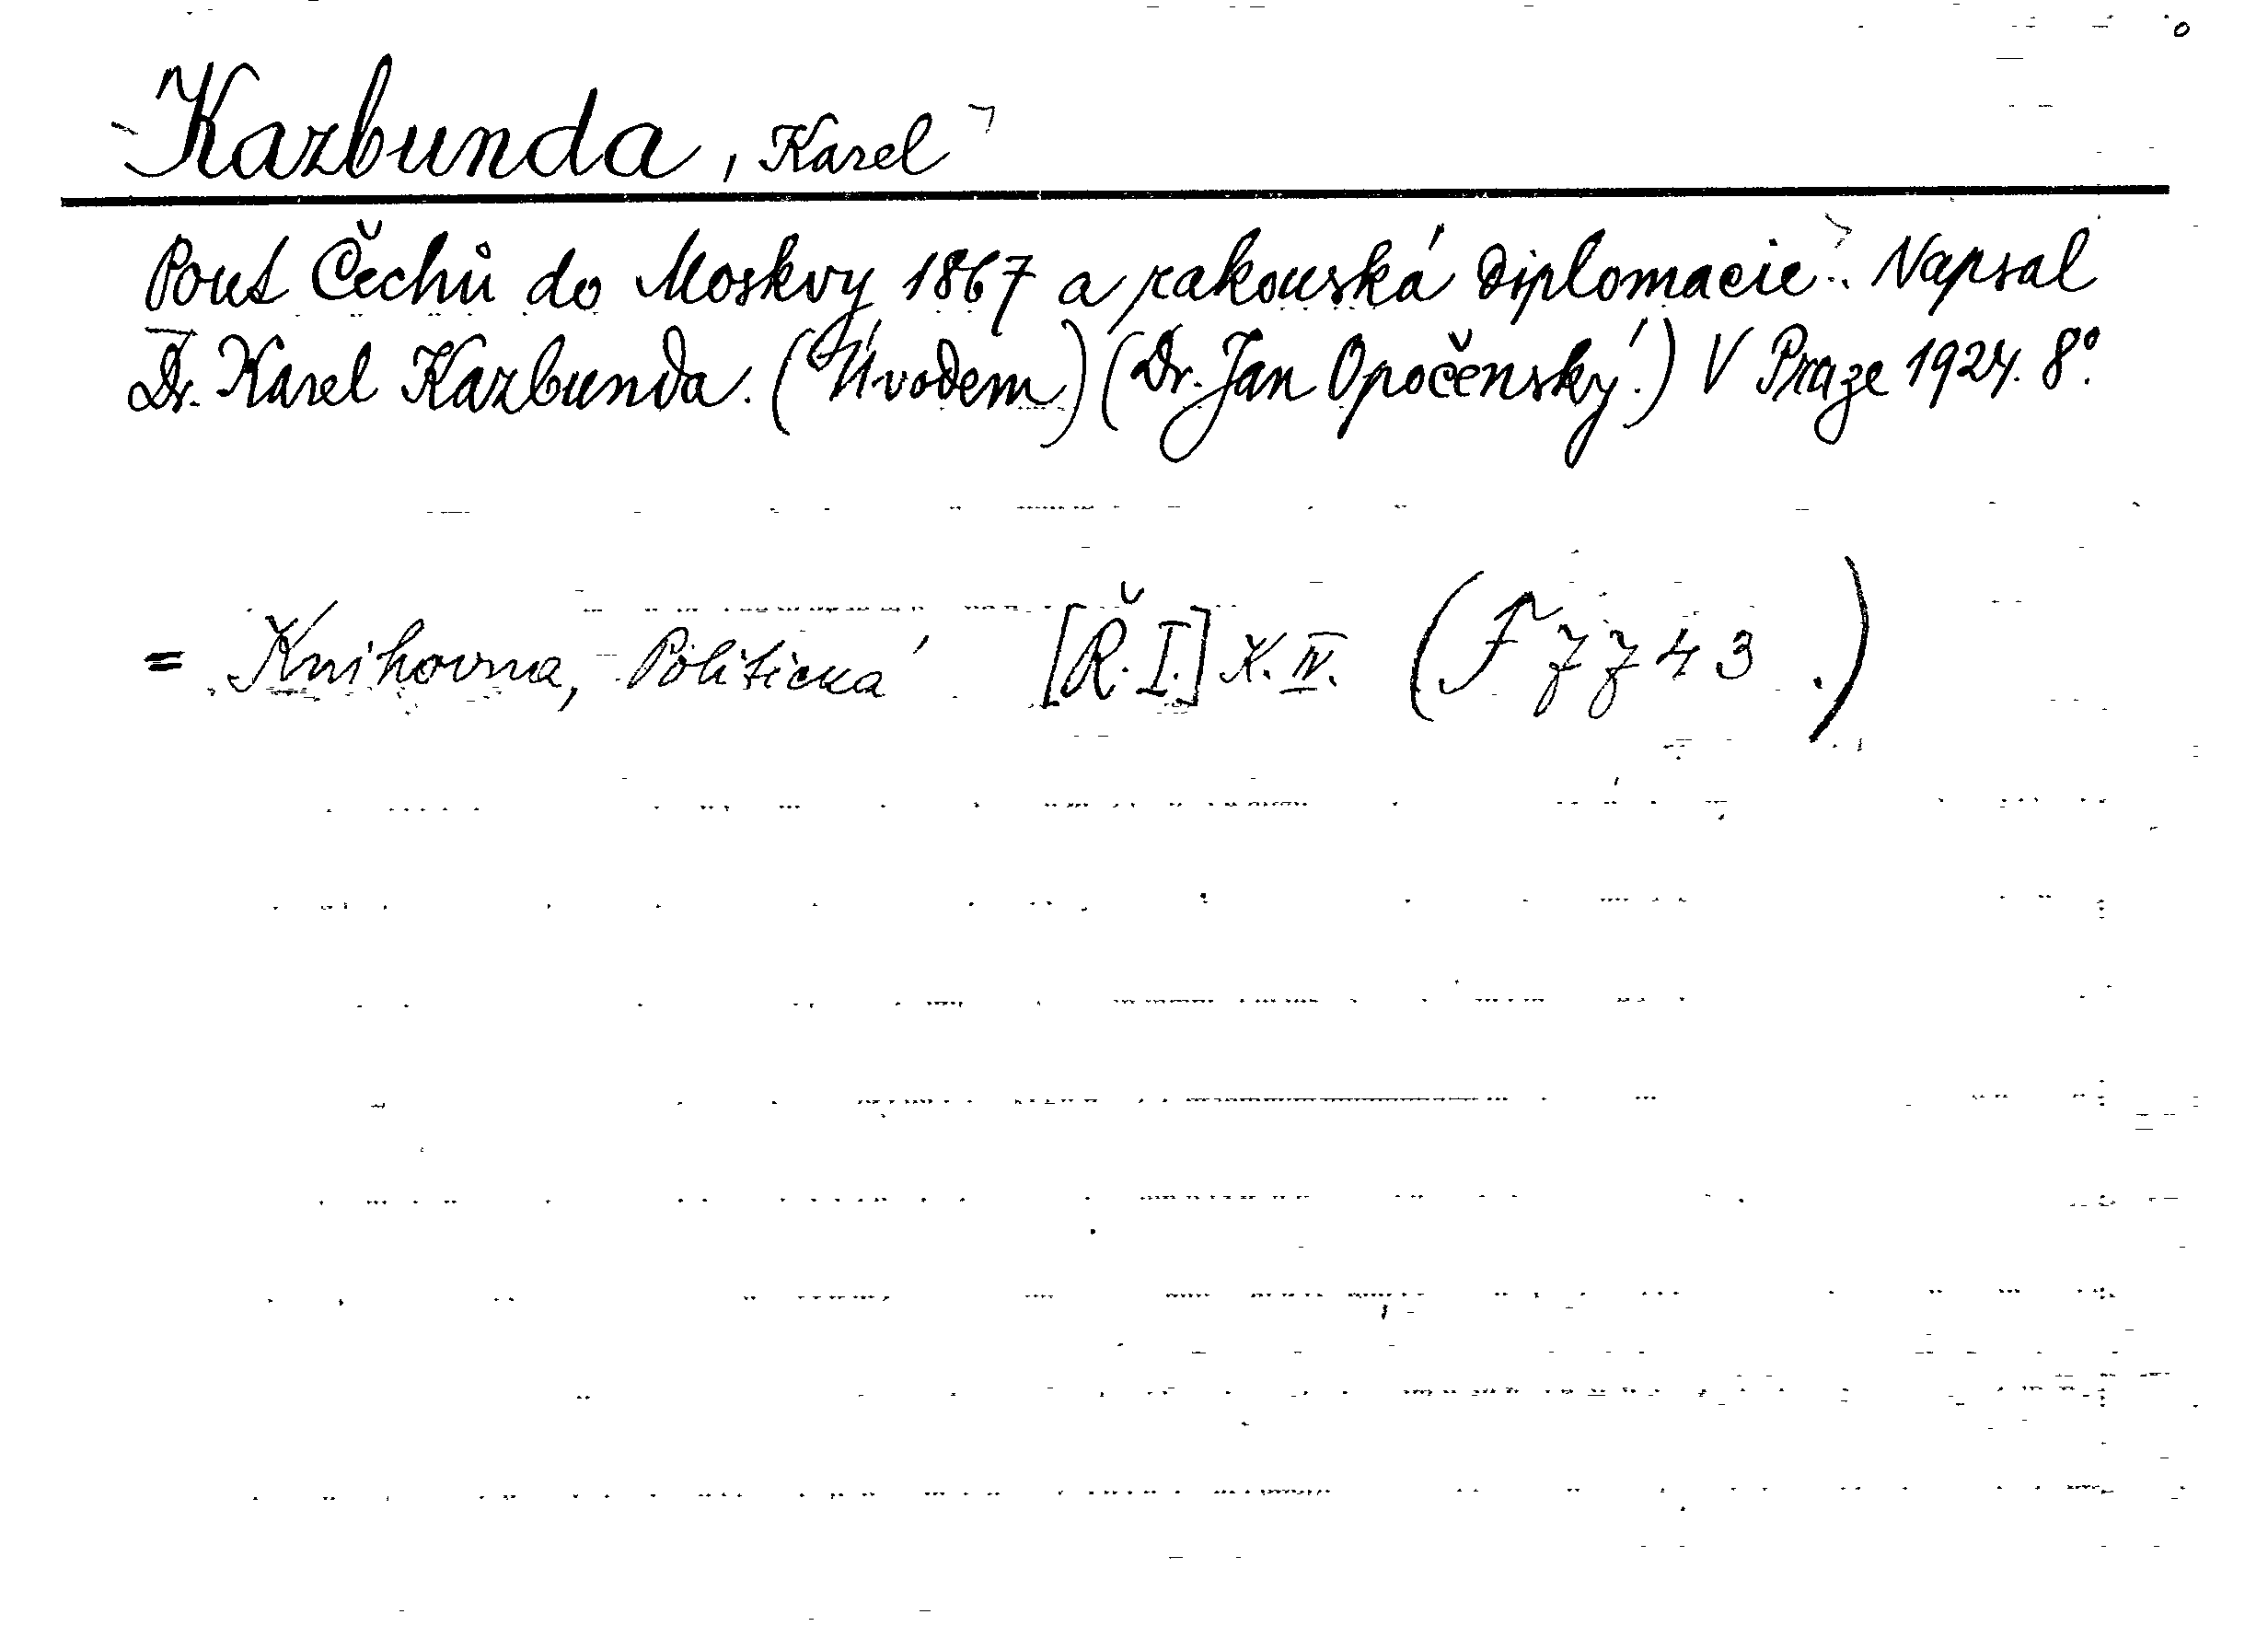 Kazbunda, Karel
Pout Čechů do Moskvy 1867 a rakouská diplomacie. Napsal
Dr. Karel Kazbunda. (Úvodem) (Dr. Jan Opočenský.) V Praze 1924. 8°.
= Knihovna, Politická [Ř. I.] K. IV. (F 7743.)